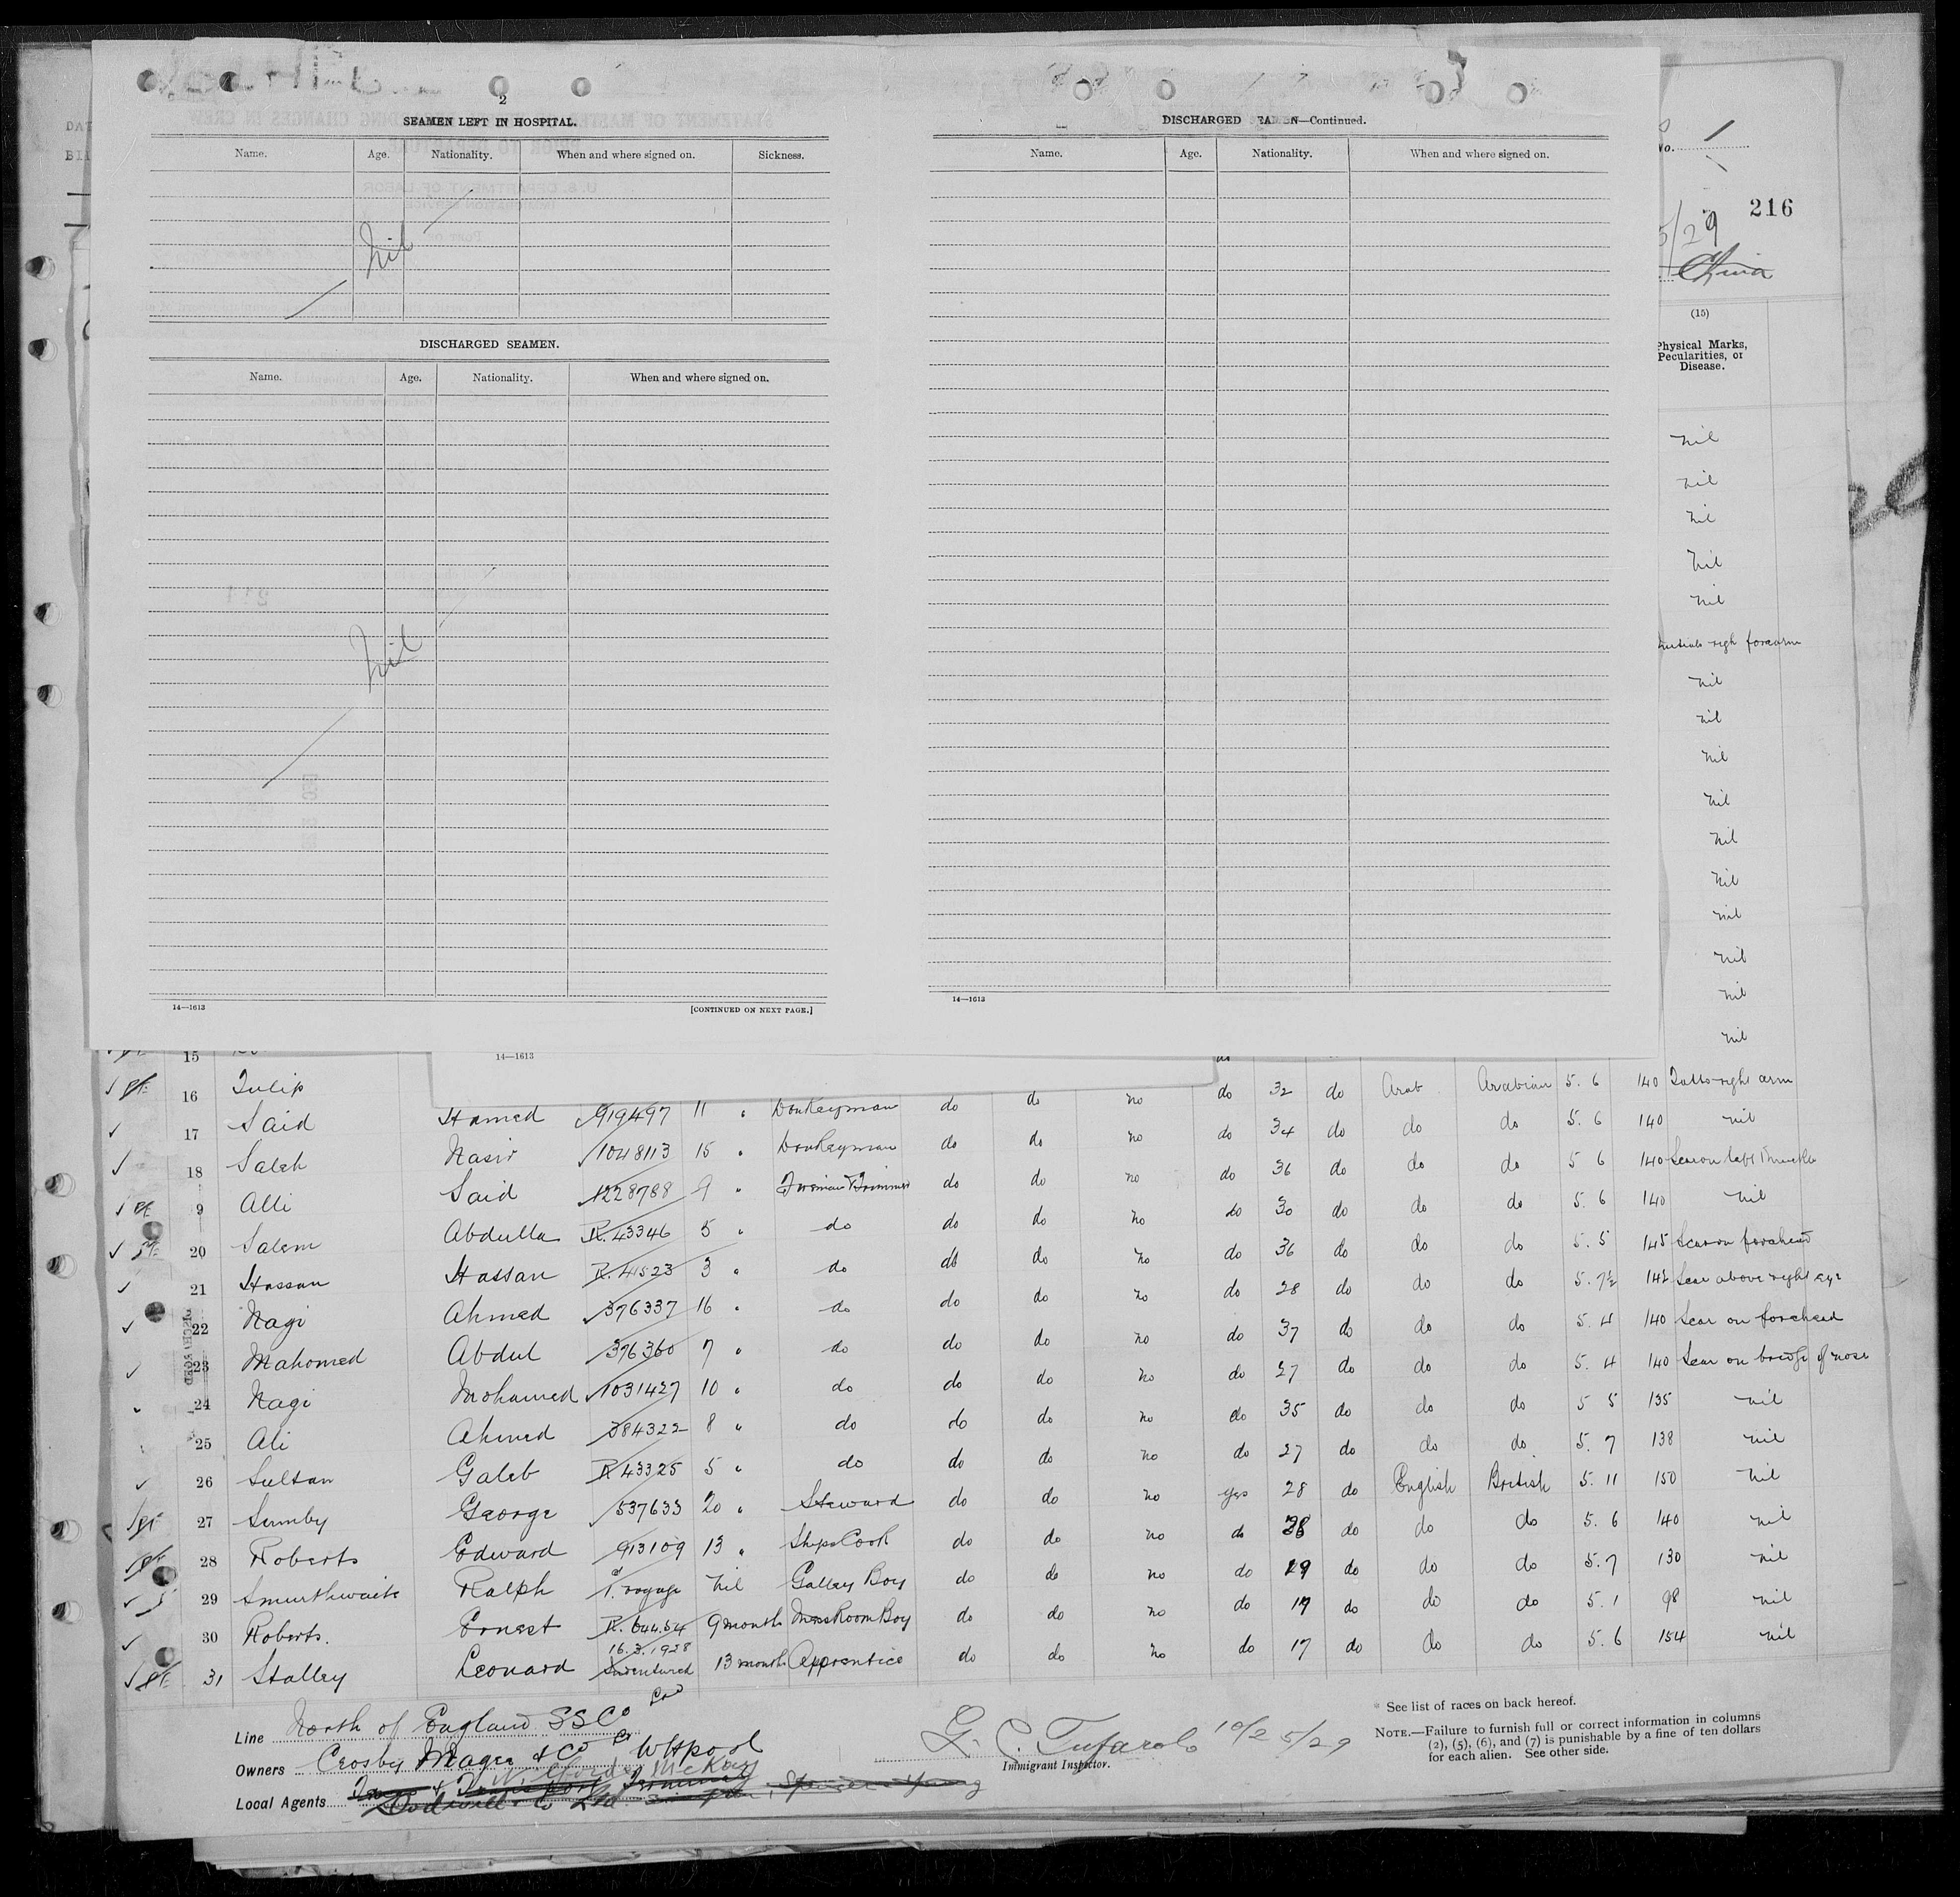 2
SEAMEN LEFT IN HOSPITAL.
Name. Age. Nationality. When and where signed on. Sickness.
Nil
DISCHARGED SEAMEN.
Name. Age. Nationality. When and where signed on.
Nil
14—1613 [CONTINUED ON NEXT PAGE.]
DISCHARGED EAMEN—Continued.
Name. Age. Nationality. When and where signed on.
14—1613
No. 1
216
5/29
China
(15)
Physical Marks, Pecularities, or Disease.
nil
nil
nil
nil
nil
Initials righ forearm
nil
nil
nil
nil
nil
nil
nil
nil
nil
nil
14—1613
15
16 Tulip Hamed 919497 11 " Donkeyman do do no do 32 do Arab Arabian 5. 6 140 Tatto right arm
17 Said Nasir 1048113 15 " Donkeyman do do no do 34 do do do 5. 6 140 nil
18 Saleh Said 1228788 9 " Fireman & Trimmer do do no do 36 do do do 5 6 140 Scar on left
9 Alli Abdulla R. 43346 5 " do do do no do 30 do do do 5. 6 140 nil
20 Salem Hassan R. 41523 3 " do do do no do 36 do do do 5. 5 145 Scar on forehead
21 Hassan Ahmed 376337 16 " do do do no do 28 do do do 5. 7½ 142 Scar above right eye
22 Nagi Abdul 396360 7 " do do do no do 37 do do do 5. 4 140 Scar on forehead
23 Mahomed Mohamed 1031427 10 " do do do no do 27 do do do 5. 4 140 Scar on bridge of nose
24 Nagi Ahmed 384322 8 " do do do no do 35 do do do 5 5 135 nil
25 Ali Galeb R 43325 5 " do do do no do 27 do do do 5. 7 138 nil
26 Sultan George 537633 20 " Steward do do no yes 28 do English British 5. 11 150 nil
27 Sumby Edward 913109 13 " Ships Cook do do no do 38 do do do 5. 6 140 nil
28 Roberts Ralph 1st voyage Nil Galley Boy do do no do 19 do do do 5. 7 130 nil
29 Smurthwaite Ernest R. 64454 9 months Mess Room Boy do do no do 19 do do do 5. 1 98 nil
30 Roberts. Leonard 16.3.1928 Indentured 13 months Apprentice do do no do 17 do do do 5. 6 154 nil
31 Stalley
Line North of England SS Co Ltd
Owners Crosby Magee & Co Ltd W Hpool
Local Agents Dodwell & Co Ltd
G. C. Tufarolo 10/25/29
Immigrant Inspector.
* See list of races on back hereof.
NOTE.—Failure to furnish full or correct information in columns
(2), (5), (6), and (7) is punishable by a fine of ten dollars
for each alien. See other side.